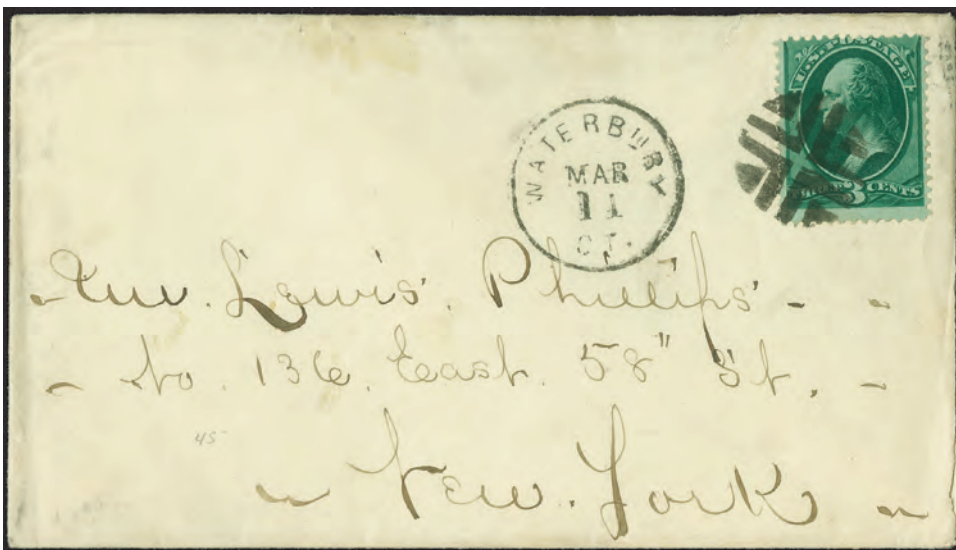 U.S. POSTAGE
THREE 3 CENTS
WATERBURY
MAR
11
CT.
Lewis. Phillips -
- to. 136. East. 58" St. -
45
- New. York -